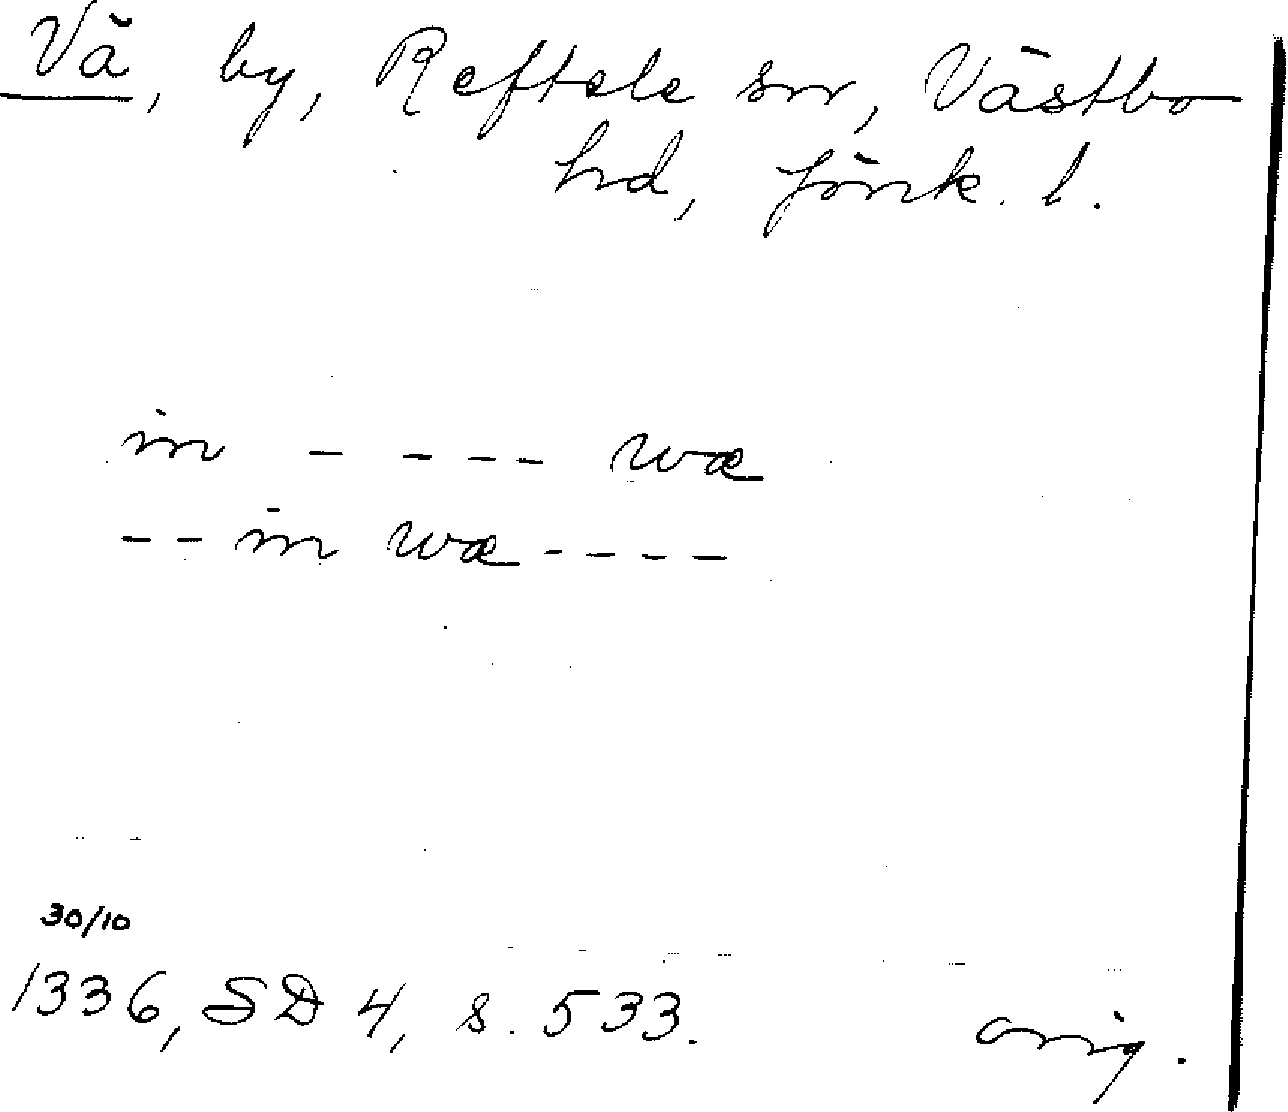 Vä, by, Reftele sn, Västbo
hd, Jönk. l.
in - - - - - wæ
- - in wæ - - - -
30/10
1336, SD 4, s. 533.
orig.